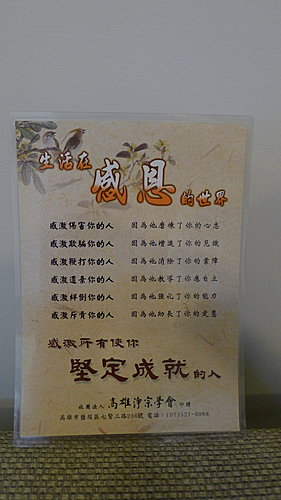 生活在感恩的世界
感激傷害你的人 因為他磨練了你的心志
感激欺騙你的人 因為他增進了你的見識
感激鞭打你的人 因為他消除了你的業障
感激遺棄你的人 因為他教導了你應自立
感激絆倒你的人 因為他強化了你的能力
感激斥責你的人 因為他助長了你的定慧
感激所有使你
堅定成就的人
社團法人高雄淨宗學會
高雄市鹽埕區七賢三路